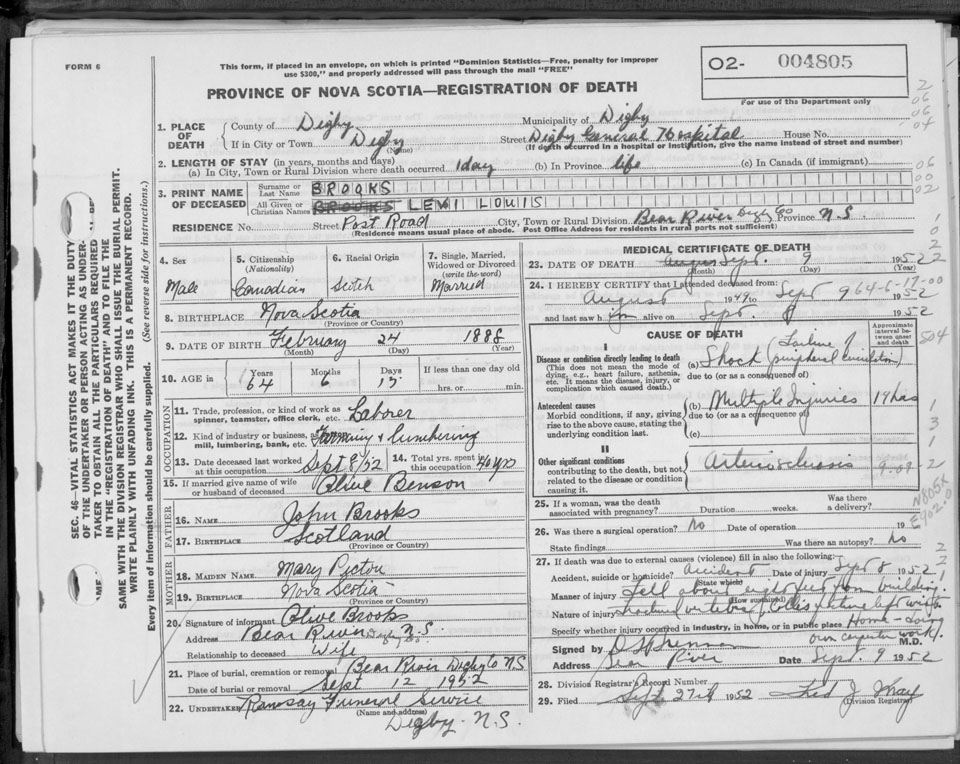 FORM 6
This form, if placed in an envelope, on which is printed "Dominion Statistics—Free, penalty for improper
use $300," and properly addressed will pass through the mail "FREE"
O2- 004805
For use of the Department only
PROVINCE OF NOVA SCOTIA—REGISTRATION OF DEATH
1. PLACE OF DEATH County of Digby Municipality of Digby
If in City or Town Digby (Name) Street Digby General Hospital House No.
(If death occurred in a hospital or institution, give the name instead of street and number)
2. LENGTH OF STAY (in years, months and days)
(a) In City, Town or Rural Division where death occurred 1 day (b) In Province life (c) In Canada (if immigrant)
3. PRINT NAME OF DECEASED Surname or Last Name BROOKS
All Given or Christian Names BROOKS LEWI LOUIS
RESIDENCE No. Street Post Road City, Town or Rural Division Bear River Digby Co Province N.S.
(Residence means usual place of abode. Post Office Address for residents in rural parts not sufficient)
4. Sex Male
5. Citizenship (Nationality) Canadian
6. Racial Origin Scotch
7. Single, Married, Widowed or Divorced (write the word) Married
8. BIRTHPLACE Nova Scotia
(Province or Country)
9. DATE OF BIRTH February 24 1888
(Month) (Day) (Year)
10. AGE in Years 64 Months 6 Days If less than one day old hrs. or min.
OCCUPATION
11. Trade, profession, or kind of work as spinner, teamster, office clerk, etc. Laborer
12. Kind of industry or business, mill, lumbering, bank, etc. Farming & Lumbering
13. Date deceased last worked at this occupation Sept 8/52 14. Total yrs. spent in this occupation 40 yrs
15. If married give name of wife or husband of deceased Olive Benson
FATHER
16. NAME John Brooks
17. BIRTHPLACE Scotland
(Province or Country)
MOTHER
18. MAIDEN NAME Mary Pictou
19. BIRTHPLACE Nova Scotia
(Province or Country)
20. Signature of informant Olive Brooks
Address Bear River Digby Co N.S.
Relationship to deceased Wife
21. Place of burial, cremation or removal Bear River Digby Co N.S.
Date of burial or removal Sept 12 1952
22. UNDERTAKER Ramsay Funeral Service
(Name and address)
Digby - N.S.
MEDICAL CERTIFICATE OF DEATH
23. DATE OF DEATH Sept. 9 1952
(Month) (Day) (Year)
24. I HEREBY CERTIFY that I attended deceased from:
August 1947 to Sept 9 1952
and last saw him alive on Sept. 9 1952
64-6-17-00
CAUSE OF DEATH
Approximate interval between onset and death
I
Disease or condition directly leading to death
(This does not mean the mode of dying, e.g., heart failure, asthenia, etc. It means the disease, injury, or complication which caused death.)
(a) Shock (peripheral circulation) Failure
due to (or as a consequence of)
Antecedent causes
Morbid conditions, if any, giving rise to the above cause, stating the underlying condition last.
(b) Multiple Injuries 19 hrs
due to (or as a consequence of)
(c)
II
Other significant conditions
contributing to the death, but not related to the disease or condition causing it.
Arteriosclerosis
25. If a woman, was the death associated with pregnancy? Duration weeks. Was there a delivery?
26. Was there a surgical operation? No Date of operation 19
State findings Was there an autopsy? No
27. If death was due to external causes (violence) fill in also the following:
Accident, suicide or homicide? Accident Date of injury Sept 8 1952
(State which)
Manner of injury Fell about eight feet from building
(How sustained)
Nature of injury fractured vertebra, Colles fracture left wrist
Specify whether injury occurred in industry, in home, or in public place Home - doing
own carpenter work.
Signed by M.D.
Address Bear River Date Sept. 9 1952
28. Division Registrar's Record Number
29. Filed Sept 27th 1952 Fred J
(Division Registrar)
SEC. 46—VITAL STATISTICS ACT MAKES IT THE DUTY
OF THE UNDERTAKER OR PERSON ACTING AS UNDER-
TAKER TO OBTAIN ALL THE PARTICULARS REQUIRED
IN THE "REGISTRATION OF DEATH" AND TO FILE THE
SAME WITH THE DIVISION REGISTRAR WHO SHALL ISSUE THE BURIAL PERMIT.
WRITE PLAINLY WITH UNFADING INK. THIS IS A PERMANENT RECORD.
Every item of information should be carefully supplied. (See reverse side for instructions.)